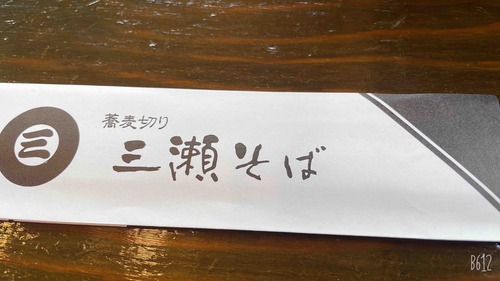 三
蕎麦切り
三瀬そば
B612